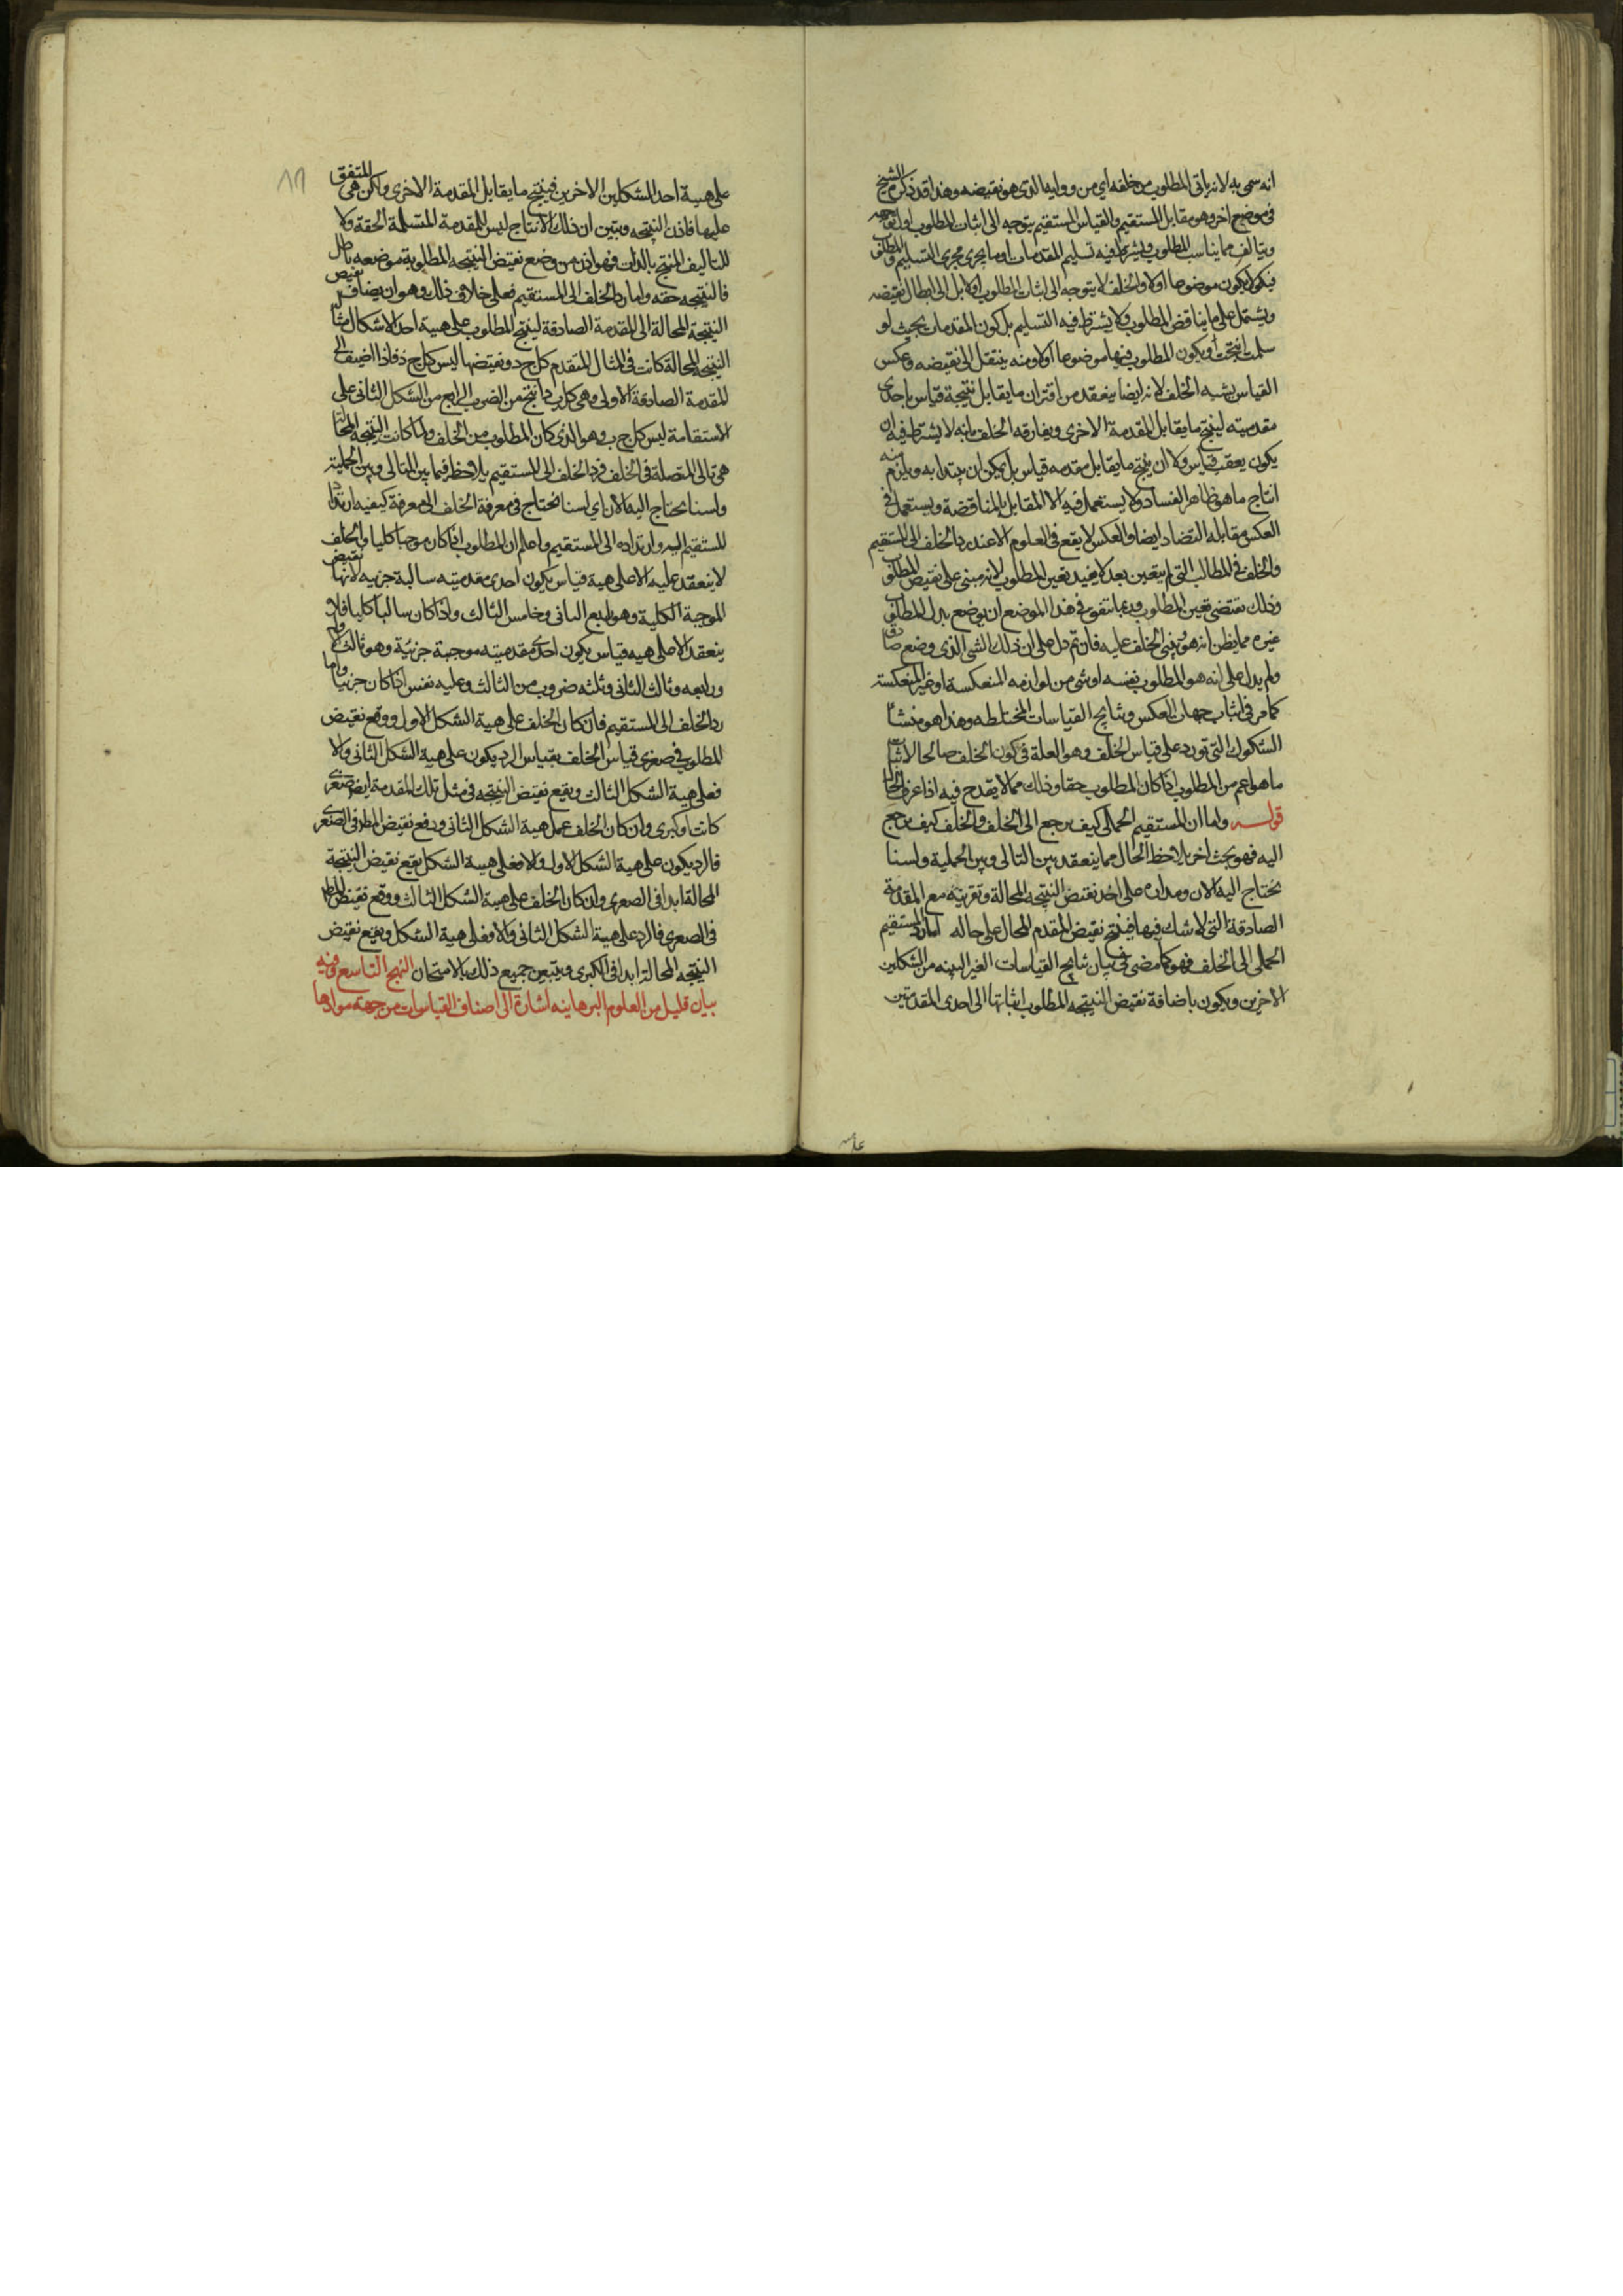 انه سمى به لانه ياتى المطلوب من خلفه اي من وراءيه الذى هو نقيضه وهذا قد ذكره الشيخ
فى موضع اخر وهو مقابل المستقيم والقياس المستقيم يتوجه الى اثبات المطلوب اول توجهه
ويتالف مما يناسب المطلوب ويشترط فيه تسليم المقدمات او ما يجرى مجرى التسليم والمطلوب
فيه لا يكون موضوعا اولا والخلف لا يتوجه الى اثبات المطلوب اولا بل الى ابطال نقيضه
ويشتمل على ما يناقض المطلوب ولا يشترط فيه التسليم بل كون المقدمات بحيث لو
سلمت انتجت ويكون المطلوب فيها موضوعا اولا ومنه ينتقل الى نقيضه وعكس
القياس يشبه الخلف لانه ايضا ينعقد من اقتران ما يقابل نتيجة قياس باحدى
مقدميته لينتج ما يقابل المقدمة الاخرى ويفارقه الخلف بانه لا يشترط فيه ان
يكون يعقب قياس ولا ان ينتج ما يقابل مقدمه قياس بل يمكن ان يبتدا به ويلزم منه
انتاج ما هو ظاهر الفساد ولا يستعمل فيه الا المقابل بالمناقضة ويستعمل فى
العكس مقابله التضاد ايضا والعكس لا يقع فى العلوم الا عند رد الخلف الى المستقيم
والخلف فى المطالب التى لم يتعين بعد لا يفيد تعين المطلوب لانه مبنى على نقيض المطلوب
وذلك يقتضى تعين المطلوب وربما يتفق فى هذا الموضع ان يوضع بدل المطلوب
غيره مما يظن انه هو ويبنى الخلف عليه فان تم دل على ان ذلك الشى الذى وضع صادق
ولم يدل على انه هو المطلوب بنفسه او شى من لوازمه المنعكسة او غير المنعكسة
كما مر فى اثبات جهات العكس ونتايج القياسات المختلطه وهذا هو منشا
الشكوك التى تورد على قياس الخلف وهو العلة فى كون الخلف صالحا لاثبات
ما هو اعم من المطلوب اذا كان المطلوب حقا وذلك مما لا يقدح فيه اذا عرف الحال
قوله واما ان المستقيم الحملى كيف يرجع الى الخلف والخلف كيف يرجع
اليه فهو بحث اخر يلاحظ الحال مما ينعقد بين التالى وبين الحملية ولسنا
نحتاج اليه الان ومداره على اخذ نقيض النتيجه المحالة وتقرنه مع المقدمة
الصادقة التى لا شك فيها فينتج نقيض المقدم المحال على حاله اما رد المستقيم
الحملى الى الخلف فهو كما مضى فى بيان نتايج القياسات الغير البينه من الشكلين
الاخرين ويكون باضافة نقيض النتيجه المطلوب اثباتها الى احدى المقدمتين
على هيية احد الشكلين الاخرين فينتج ما يقابل المقدمة الاخرى ولكن هى المتفق
عليها فاذن النتيجه ويتبين ان ذلك الانتاج ليس للمقدمة المتسلمة الحقة ولا
للتاليف المنتج بالذات فهو اذن من وضع نقيض النتيجه المطلوبة موضعه باطل
فالنتيجه حقه واما رد الخلف الى المستقيم فعلى خلاف ذلك وهو ان يضاف نقيض
النتيجة المحالة الى المقدمة الصادقة لينتج المطلوب على هيية احد الاشكال مثلا
النتيجه المحالة كانت فى المثال المتقدم كل ج د ونقيضها ليس كل ج د فاذا اضيف الى
المقدمة الصادقة الاولى وهى كل ب د انتج من الضرب الرابع من الشكل الثانى على
الاستقامة ليس كل ج ب وهو الذى كان المطلوب من الخلف ولما كانت النتيجه المحالة
هى تالى المتصلة فى الخلف فرد الخلف الى المستقيم يلاحظ فيما بين التالى وبين الحملية
ولسنا نحتاج اليه الان اي لسنا نحتاج فى معرفة الخلف الى معرفة كيفيه ارتداد
المستقيم اليه وارتداده الى المستقيم واعلم ان المطلوب اذا كان موجبا كليا والخلف
لا ينعقد عليه الا على هيية قياس يكون احدى مقدميته سالبة جزييه لانها نقيض
الموجبة الكلية وهو رابع الثانى وخامس الثالث واذا كان سالبا كليا فلا
ينعقد الا على هييه قياس يكون احدى مقدميته موجبة جزئية وهو ثالث الاول
ورابعه وثالث الثانى وثلثه ضروب من الثالث وعليه نفس اذا كان جزييا واما
رد الخلف الى المستقيم فان كان الخلف على هيية الشكل الاول ووقع نقيض
المطلوب فى صغرى قياس الخلف بقياس الرد يكون على هيية الشكل الثانى والا
فعلى هيية الشكل الثالث ويقع نقيض النتيجه فى مثل تلك المقدمة ايضا صغرى
كانت او كبرى وان كان الخلف على هيية الشكل الثانى ووقع نقيض المط فى الصغرى
فالرد يكون على هيية الشكل الاول والا فعلى هيية الشكل يقع نقيض النتيجة
المحالة ابدا فى الصغرى وان كان الخلف على هيية الشكل الثالث ووقع نقيض المط
فى الصغرى فالرد على هيية الشكل الثانى والا فعلى هيية الشكل ويقع نقيض
النتيجه المحالة ابدا فى الكبرى ويتبين جميع ذلك بالامتحان النهج التاسع وفيه
بيان قليل من العلوم البرهانيه اشارة الى اصناف القياسات من جهة موادها